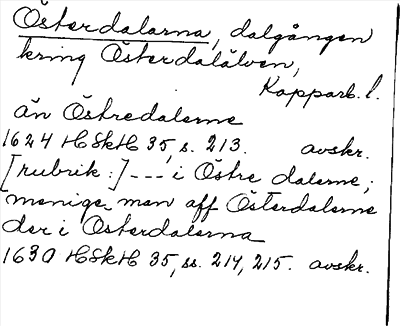 Österdalarna, dalgången
kring Österdalälven,
Kopparb. l.
än Östredalerne
1624 HSkH 35, s. 213. avskr.
[rubrik:] --- i Östre dalerne;
menige man aff Österdalerne
der i Österdalerna
1630 HSkH 35, ss. 214, 215. avskr.